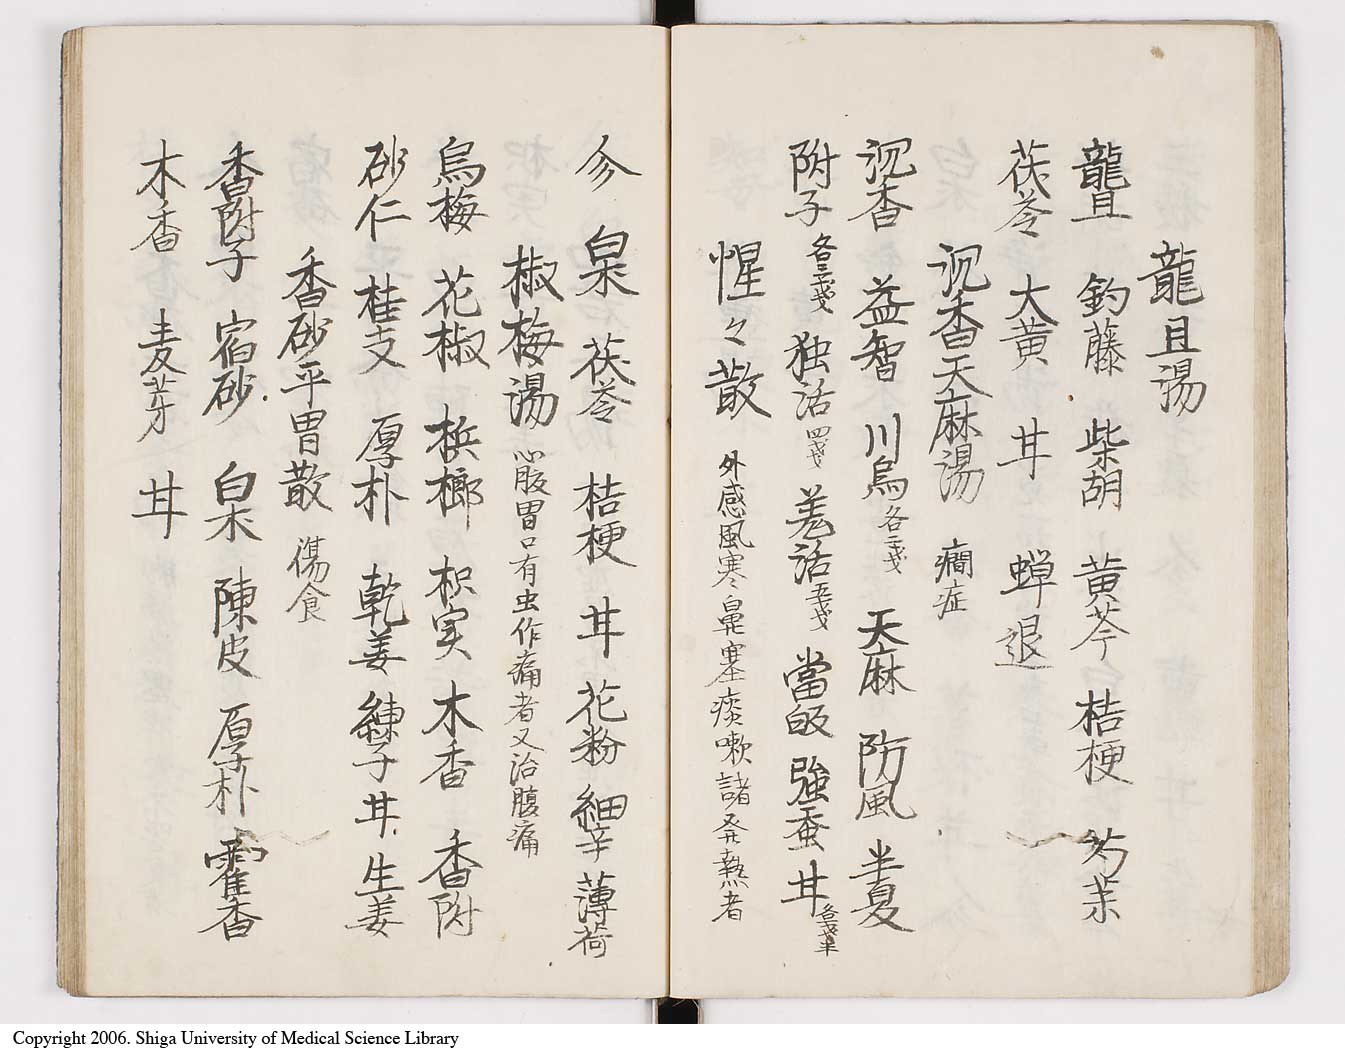 龍且湯
龍且 釣藤 柴胡 黄芩 桔梗 芍薬
茯苓 大黄 甘 蝉退
沉香天麻湯 癇症
沉香 益智 川烏各二戔 天麻 防風 半夏
附子各三戔 独活四戔 羗活五戔 當皈 強蚕 甘各戔半
惺々散 外感風寒鼻塞痰嗽諸発熱者
参 白朮 茯苓 桔梗 甘 花粉 細辛 薄荷
椒梅湯 心腹胃口有虫作痛者又治腹痛
烏梅 花椒 梹榔 枳実 木香 香附
砂仁 桂支 厚朴 乾姜 練子 甘 生姜
香砂平胃散 傷食
香附子 宿砂 白朮 陳皮 厚朴 霍香
木香 麦芽 甘
Copyright 2006. Shiga University of Medical Science Library